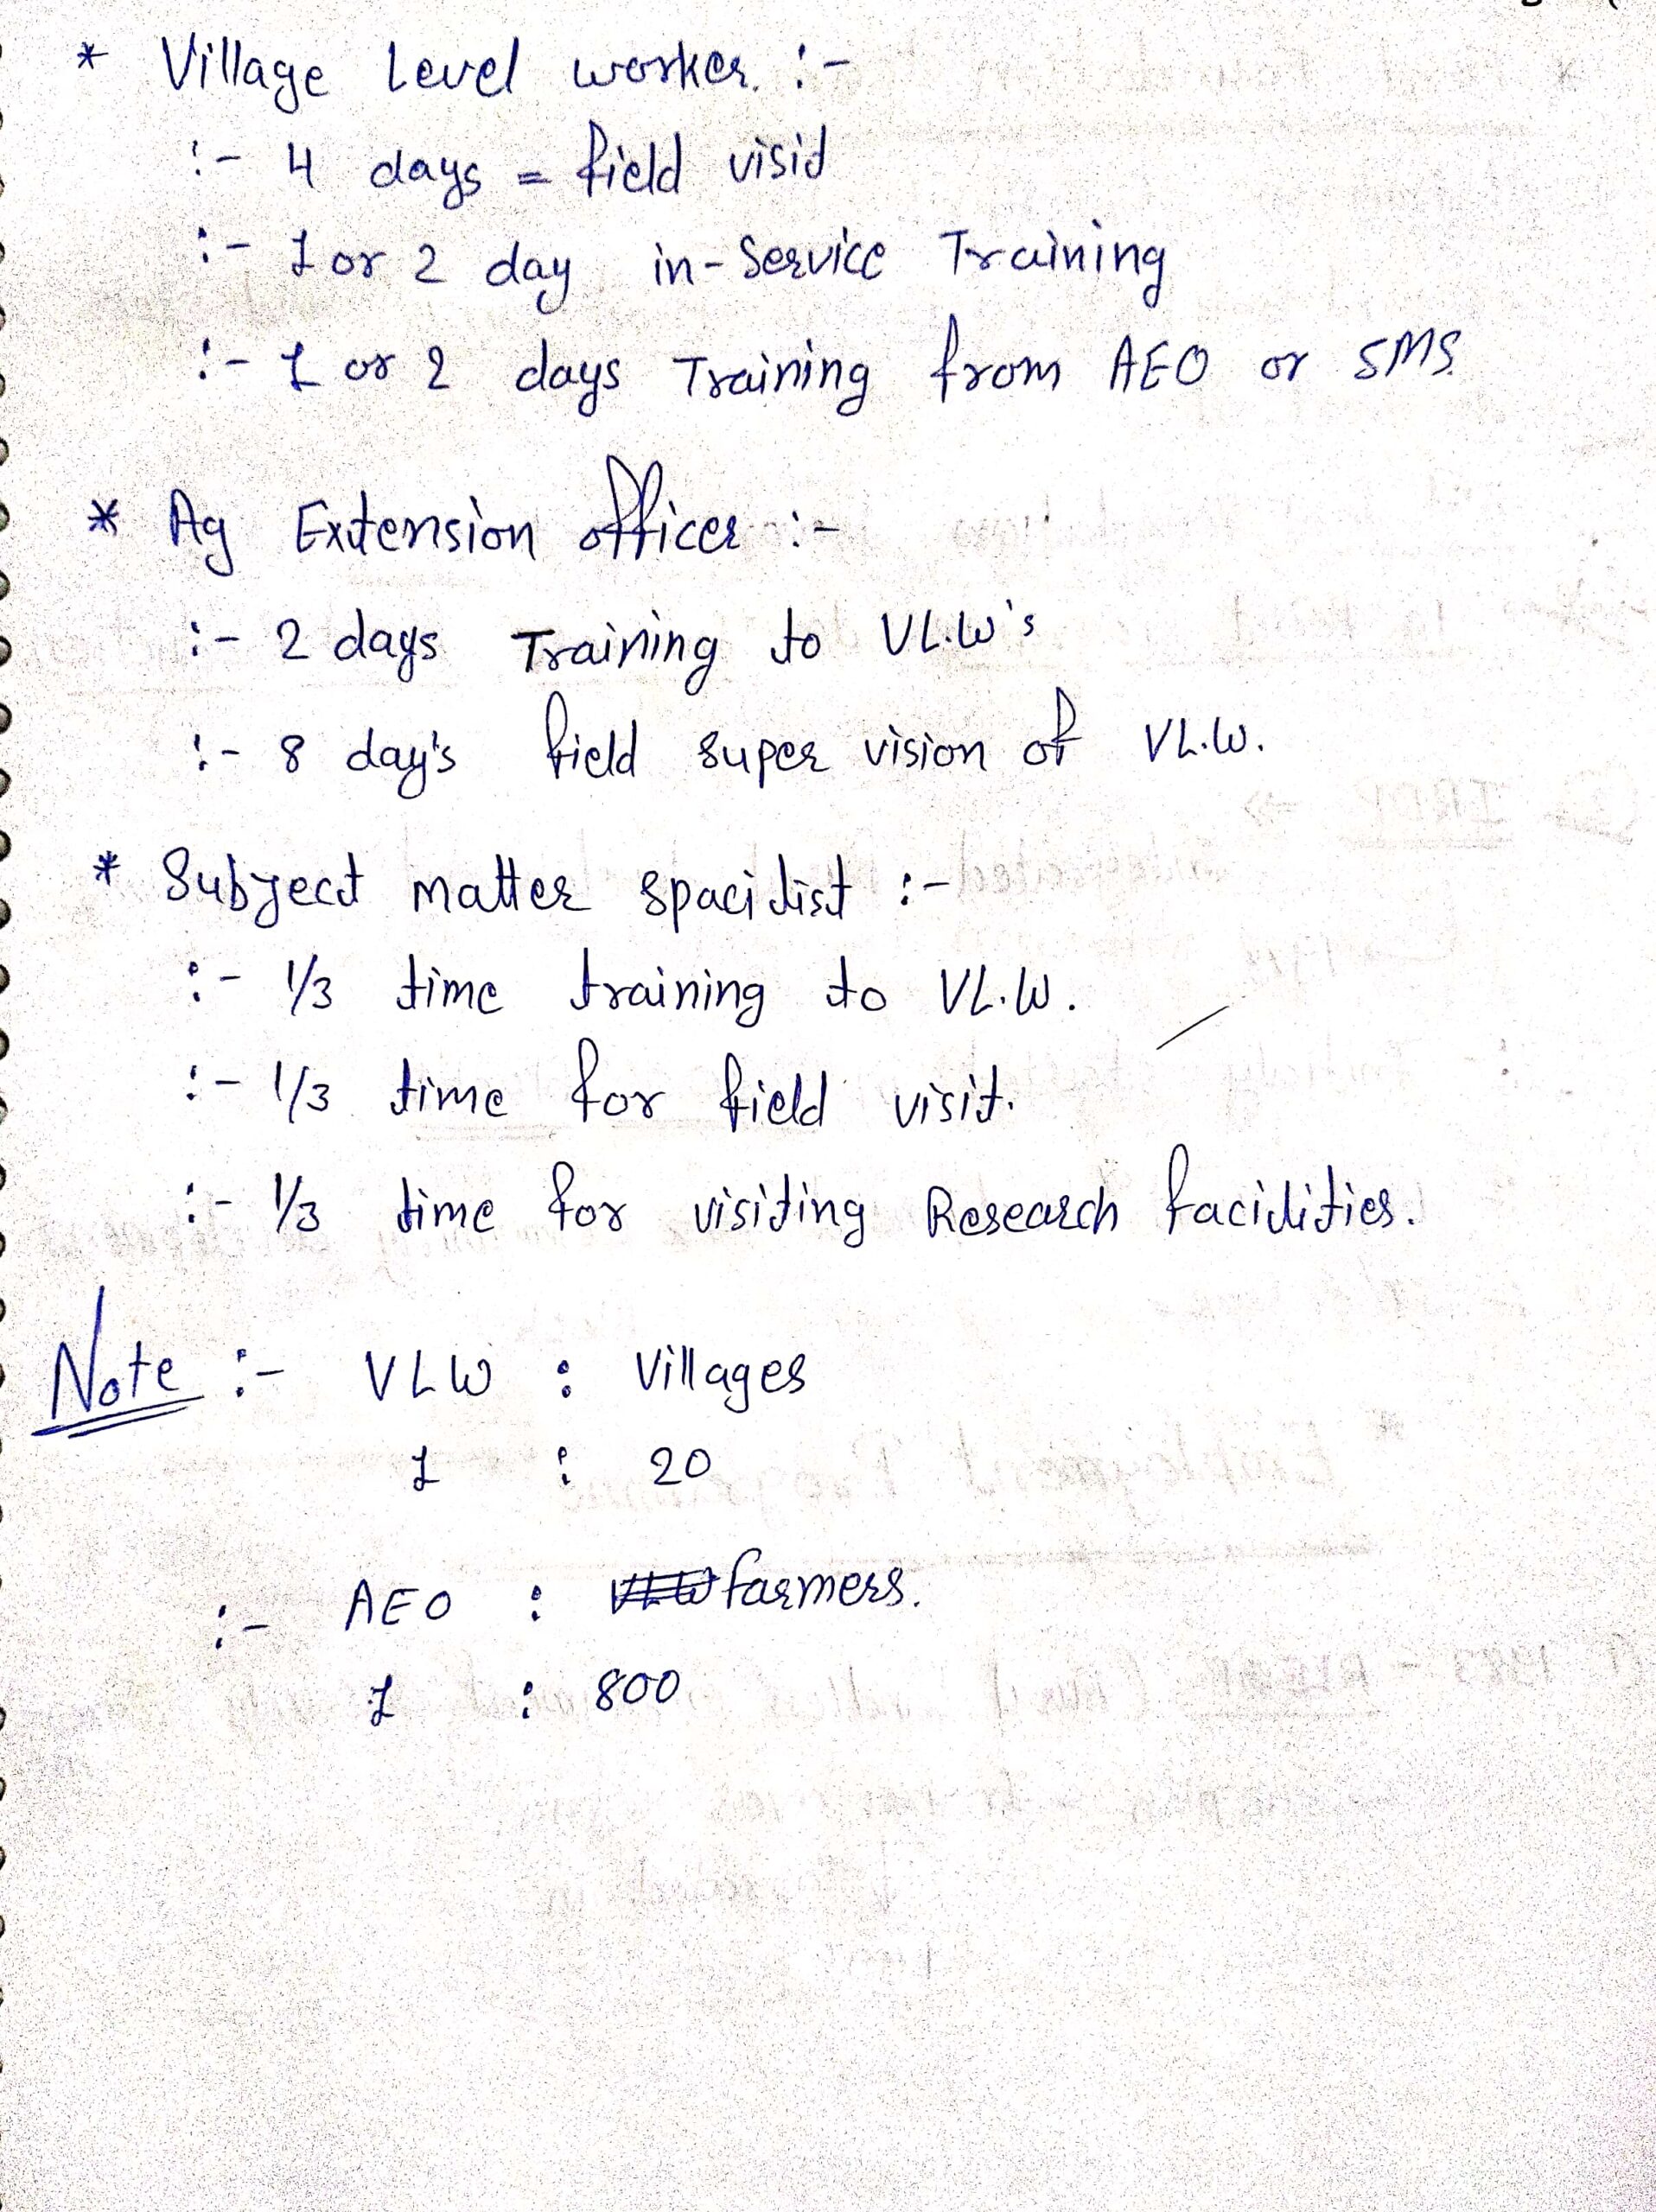 * Village Level worker :-
:- 4 days = field visit
:- 1 or 2 day in-Service Training
:- 1 or 2 days Training from AEO or SMS.
* Ag Extension officer :-
:- 2 days Training to V.L.W's
:- 8 day's field super vision of V.L.W.
* Subject matter spacilist :-
:- 1/3 time training to V.L.W.
:- 1/3 time for field visit.
:- 1/3 time for visiting Research facilities.
Note :- VLW : Villages
1 : 20
:- AEO : VLW farmers.
1 : 800